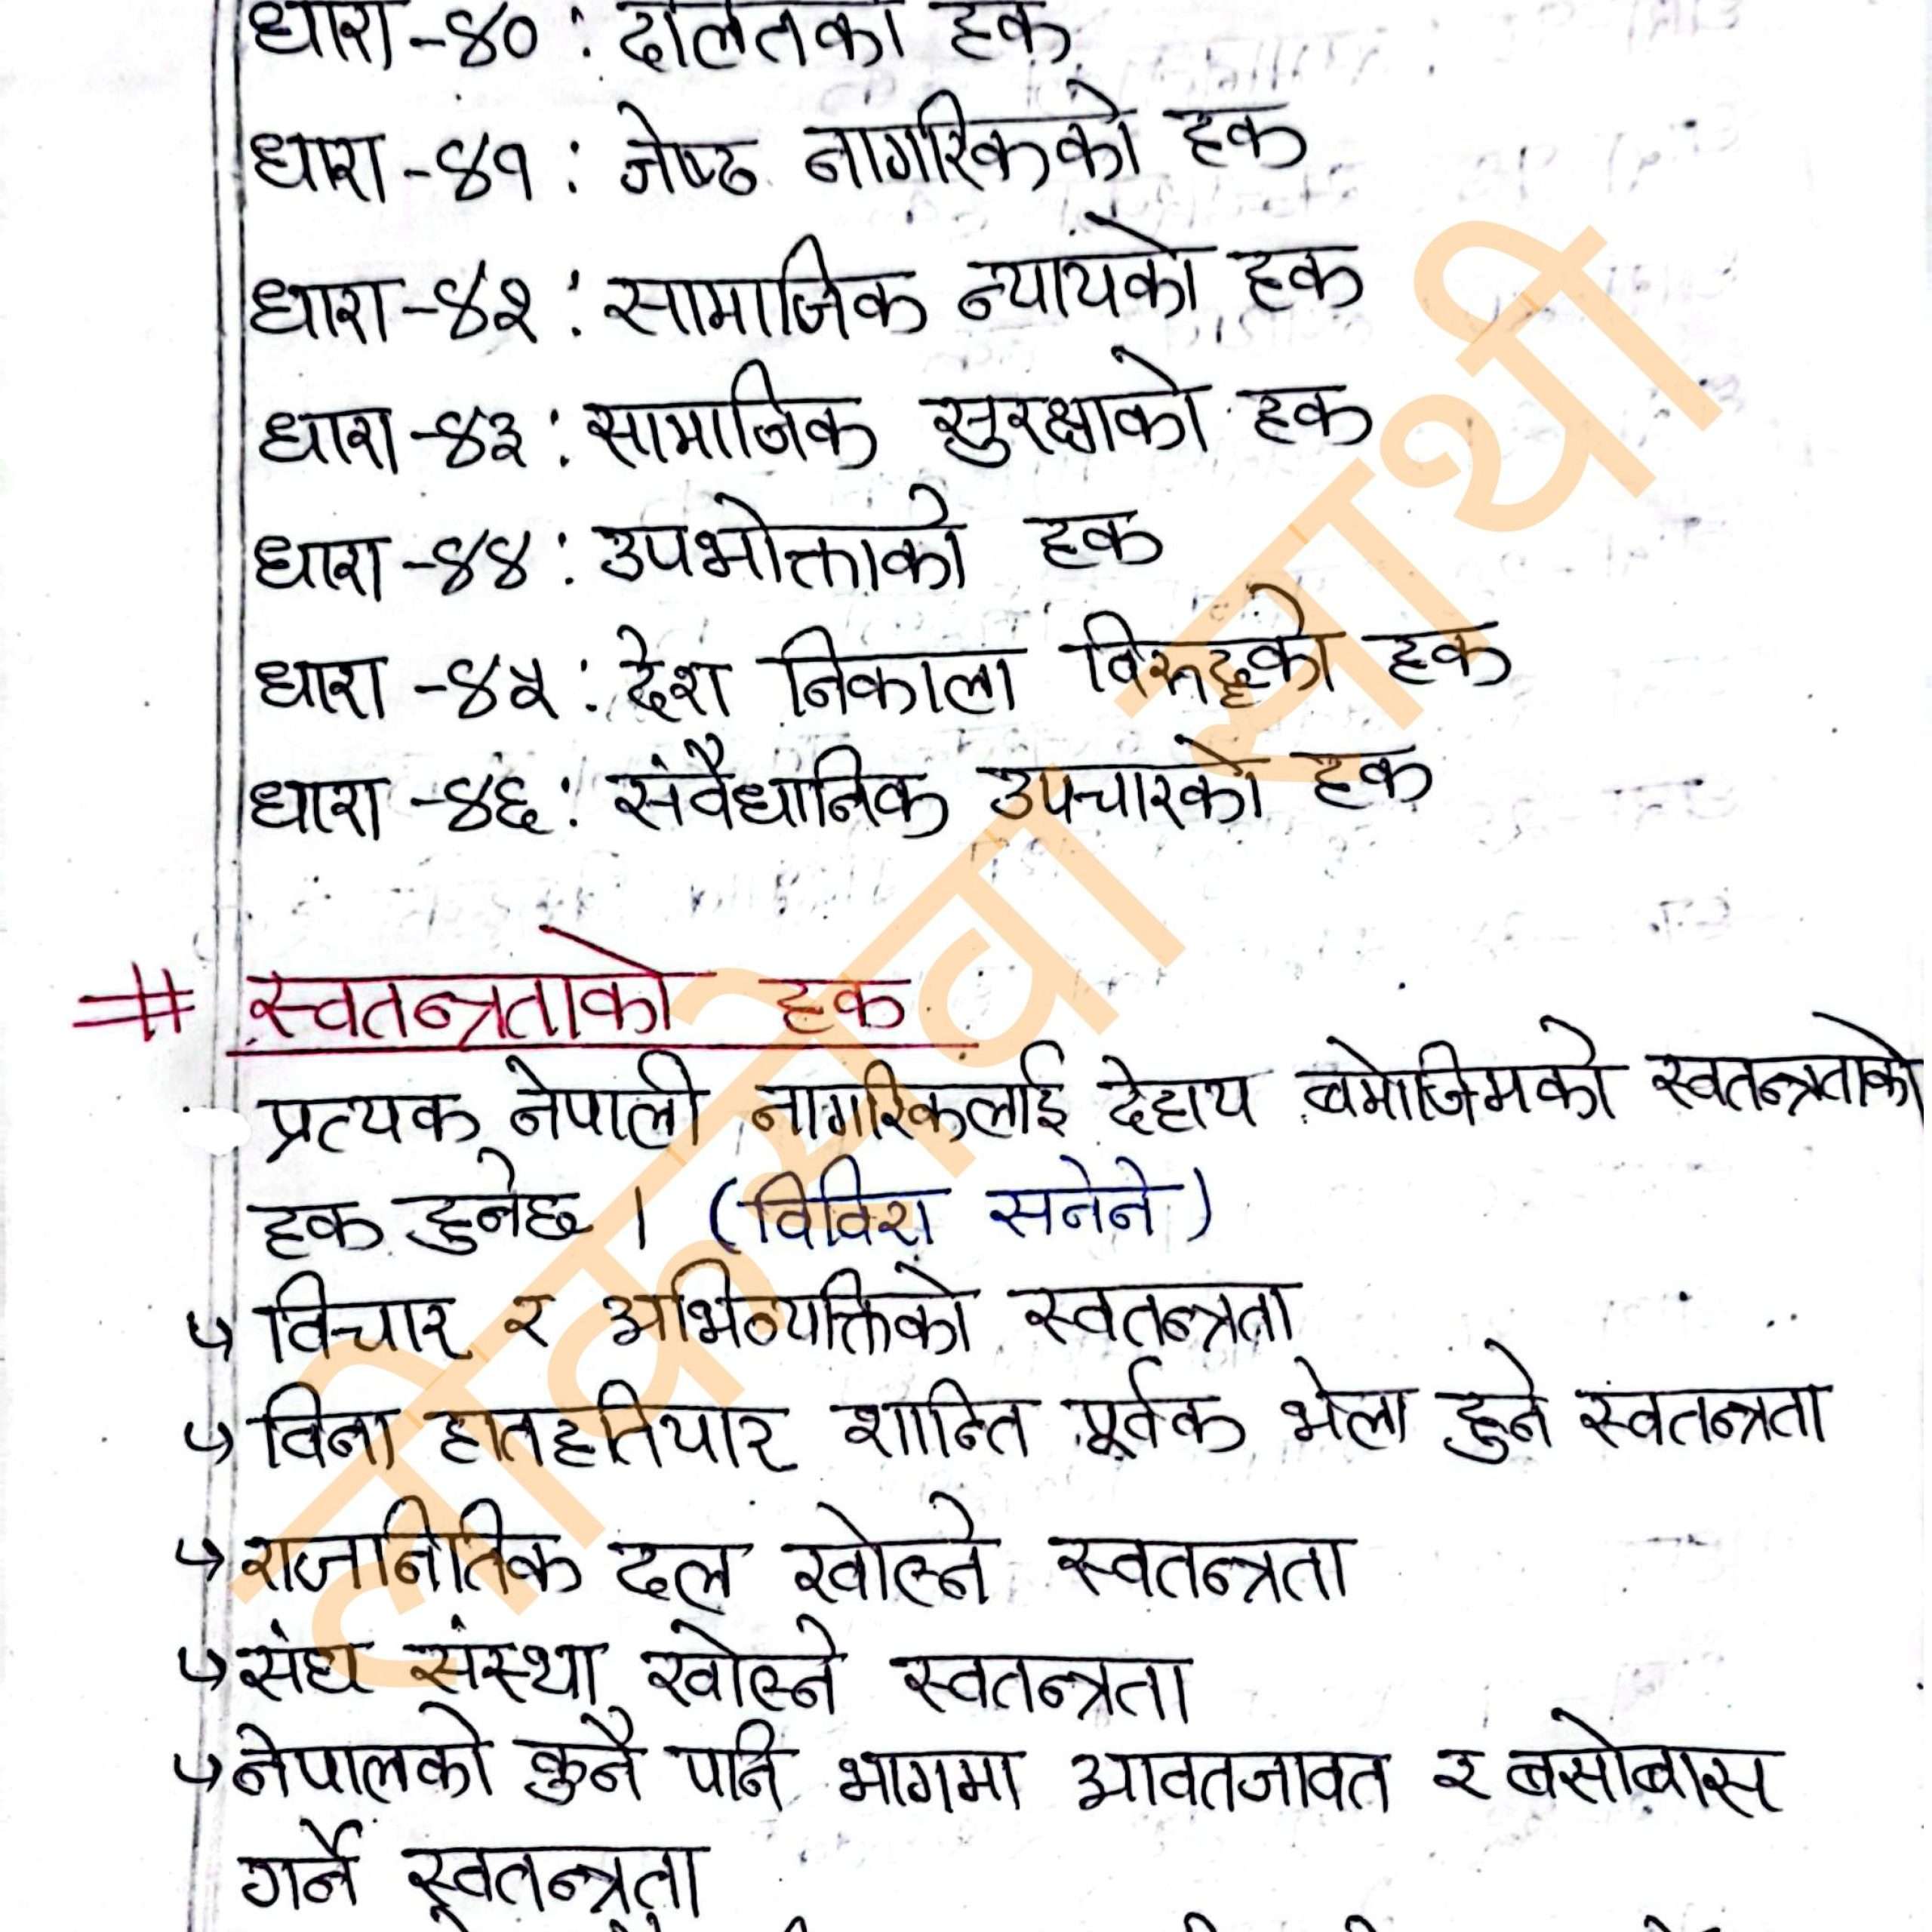 धारा-४० : दलितको हक
धारा-४१ : जेष्ठ नागरिकको हक
धारा-४२ : सामाजिक न्यायको हक
धारा-४३ : सामाजिक सुरक्षाको हक
धारा-४४ : उपभोक्ताको हक
धारा-४५ : देश निकाला विरुद्दको हक
धारा-४६ : संवैधानिक उपचारको हक
# स्वतन्त्रताको हक
प्रत्यक नेपाली नागरिकलाई देहाय बमोजिमको स्वतन्त्रताको
हक हुनेछ । (विविरा सनेने)
↳ विचार र अभिव्यक्तिको स्वतन्त्रता
↳ विना हातहतियार शान्ति पूर्वक भेला हुने स्वतन्त्रता
↳ राजनितिक दल खोल्ने स्वतन्त्रता
↳ संघ संस्था खोल्ने स्वतन्त्रता
↳ नेपालको कुनै पनि भागमा आवतजावत र बसोबास
गर्ने स्वतन्त्रता
लोकसेवा साथी